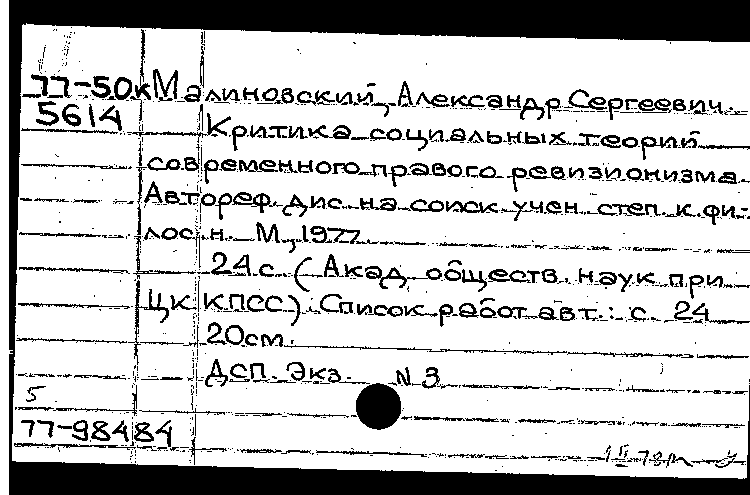 77-50к Малиновский, Александр Сергеевич.
5614 Критика социальных теорий
современного правого ревизионизма.
Автореф. дис. на соиск. учен. степ. к. фи-
лос. н. М., 1977.
24 с. (Акад. обществ. наук при
ЦК КПСС). Список работ авт.: с. 24
20см.
ДСП. Экз. N 3
5
77-98484